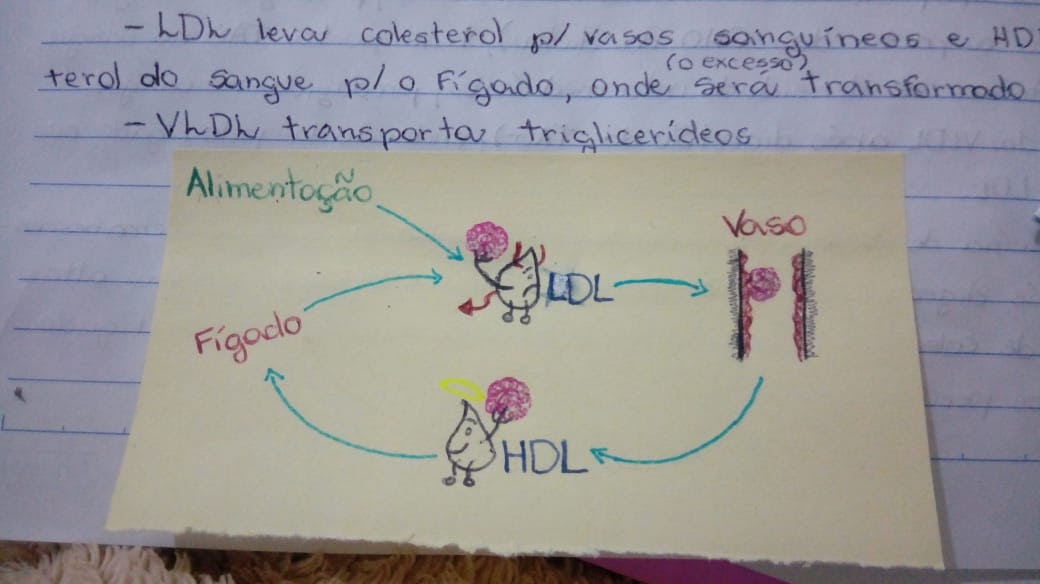 - LDL leva colesterol p/ vasos sanguíneos e HD
(o excesso)
terol do sangue p/ o Fígado, onde será transformado
- VLDL transporta triglicerídeos
Alimentação
Vaso
LDL
Fígado
HDL